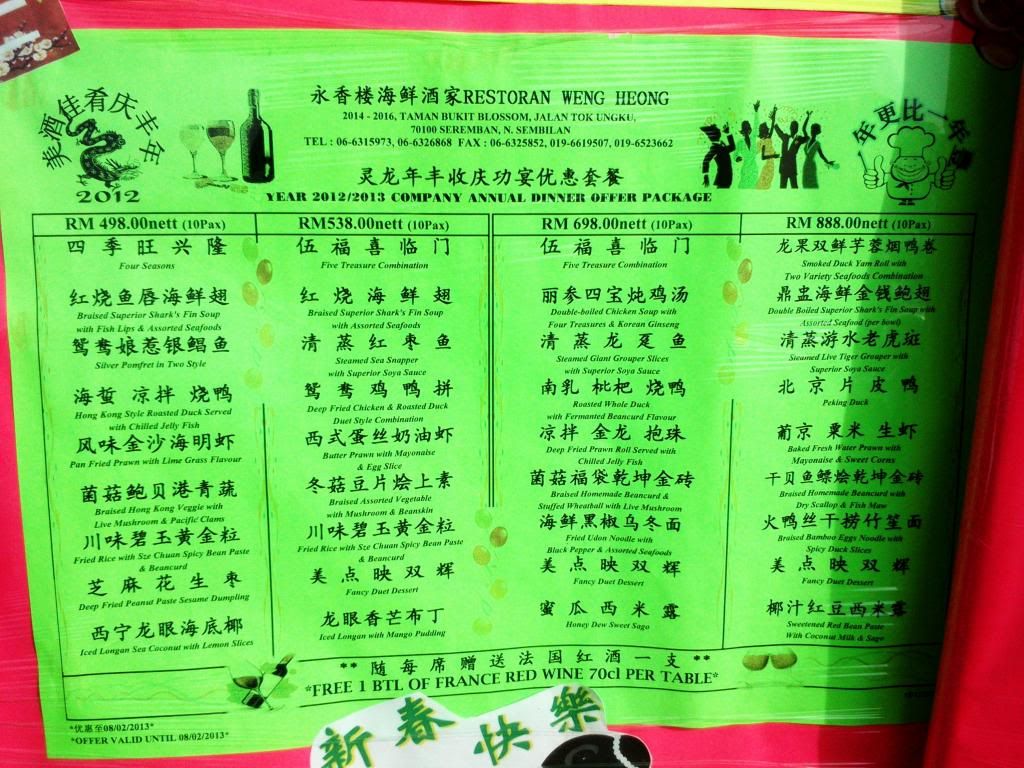 美酒佳肴庆丰年
2012
永香楼海鲜酒家RESTORAN WENG HEONG
2014 - 2016, TAMAN BUKIT BLOSSOM, JALAN TOK UNGKU,
70100 SEREMBAN, N. SEMBILAN
TEL : 06-6315973, 06-6326868 FAX : 06-6325852, 019-6619507, 019-6523662
年更比一年
灵龙年丰收庆功宴优惠套餐
YEAR 2012/2013 COMPANY ANNUAL DINNER OFFER PACKAGE
RM 498.00nett (10Pax)
四季旺兴隆
Four Seasons
红烧鱼唇海鲜翅
Braised Superior Shark's Fin Soup
with Fish Lips & Assorted Seafoods
鸳鸯娘惹银鲳鱼
Silver Pomfret in Two Style
海蜇 凉拌 烧鸭
Hong Kong Style Roasted Duck Served
with Chilled Jelly Fish
风味金沙海明虾
Pan Fried Prawn with Lime Grass Flavour
菌菇鲍贝港青蔬
Braised Hong Kong Veggie with
Live Mushroom & Pacific Clams
川味碧玉黄金粒
Fried Rice with Sze Chuan Spicy Bean Paste
& Beancurd
芝麻花生枣
Deep Fried Peanut Paste Sesame Dumpling
西宁龙眼海底椰
Iced Longan Sea Coconut with Lemon Slices
RM538.00nett (10Pax)
伍福喜临门
Five Treasure Combination
红烧海鲜翅
Braised Superior Shark's Fin Soup
with Assorted Seafoods
清蒸红枣鱼
Steamed Sea Snapper
with Superior Soya Sauce
鸳鸯鸡鸭拼
Deep Fried Chicken & Roasted Duck
Duet Style Combination
西式蛋丝奶油虾
Butter Prawn with Mayonaise
& Egg Slice
冬菇豆片烩上素
Braised Assorted Vegetable
with Mushroom & Beanskin
川味碧玉黄金粒
Fried Rice with Sze Chuan Spicy Bean Paste
& Beancurd
美点映双辉
Fancy Duet Dessert
龙眼香芒布丁
Iced Longan with Mango Pudding
RM 698.00nett (10Pax)
伍福喜临门
Five Treasure Combination
丽参四宝炖鸡汤
Double-boiled Chicken Soup with
Four Treasures & Korean Ginseng
清蒸龙趸鱼
Steamed Giant Grouper Slices
with Superior Soya Sauce
南乳 枇杷 烧鸭
Roasted Whole Duck
with Fermented Beancurd Flavour
凉拌 金龙 抱珠
Deep Fried Prawn Roll Served with
Chilled Jelly Fish
菌菇福袋乾坤金砖
Braised Homemade Beancurd &
Stuffed Wheatball with Live Mushroom
海鲜黑椒乌冬面
Fried Udon Noodle with
Black Pepper & Assorted Seafoods
美点映双辉
Fancy Duet Dessert
蜜瓜西米露
Honey Dew Sweet Sago
RM 888.00nett (10Pax)
龙果双鲜芋蓉烟鸭卷
Smoked Duck Yam Roll with
Two Variety Seafoods Combination
鼎盅海鲜金钱鲍翅
Double Boiled Superior Shark's Fin Soup with
Assorted Seafood (per bowl)
清蒸游水老虎斑
Steamed Live Tiger Grouper with
Superior Soya Sauce
北京片皮鸭
Peking Duck
葡京 粟米 生虾
Baked Fresh Water Prawn with
Mayonaise & Sweet Corns
干贝鱼鳔烩乾坤金砖
Braised Homemade Beancurd with
Dry Scallop & Fish Maw
火鸭丝干捞竹笙面
Braised Bamboo Eggs Noodle with
Spicy Duck Slices
美点映双辉
Fancy Duet Dessert
椰汁红豆西米露
Sweetened Red Bean Paste
With Coconut Milk & Sago
** 随每席赠送法国红酒一支 **
*FREE 1 BTL OF FRANCE RED WINE 70cl PER TABLE*
*优惠至08/02/2013*
*OFFER VALID UNTIL 08/02/2013*
新春快樂